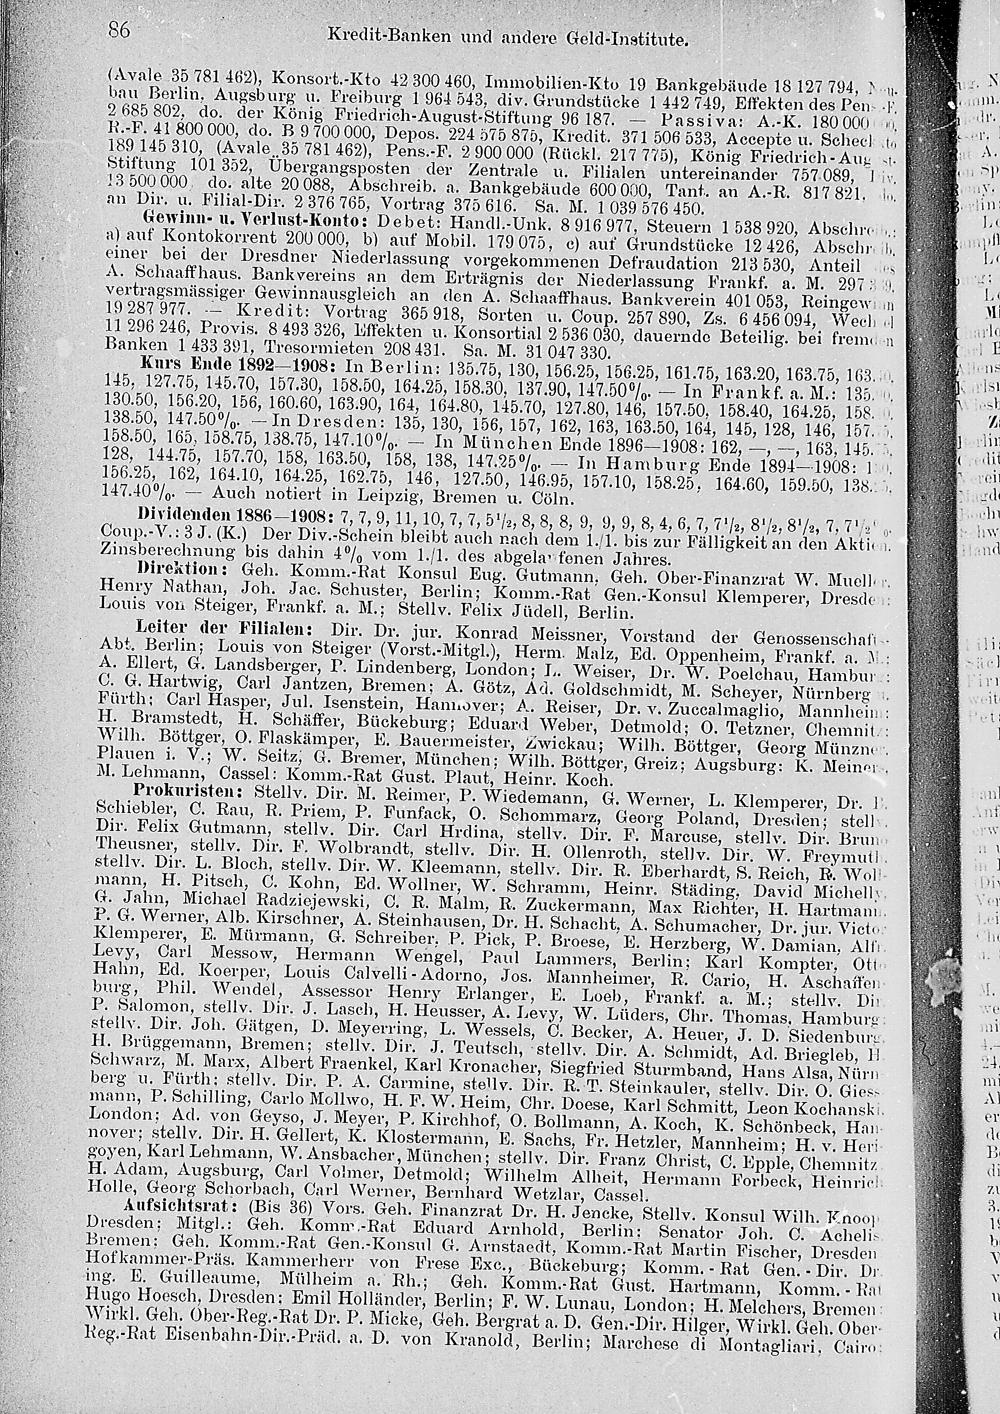 86
Kredit-Banken und andere Geld-Institute.
(Avale 35 781 462), Konsort.-Kto 42 300 460, Immobilien-Kto 19 Bankgebäude 18 127 794,
bau Berlin, Augsburg u. Freiburg 1 964 543, div. Grundstücke 1 442 749, Effekten des Pens.-F.
2 685 802, do. der König Friedrich-August-Stiftung 96 187. — Passiva: A.-K. 180 000 000,
R.-F. 41 800 000, do. B 9 700 000, Depos. 224 575 875, Kredit. 371 506 533, Accepte u. Scheck
189 145 310, (Avale 35 781 462), Pens.-F. 2 900 000 (Rückl. 217 775), König Friedrich-Aug
Stiftung 101 352, Übergangsposten der Zentrale u. Filialen untereinander 757 089,
13 500 000 do. alte 20 088, Abschreib. a. Bankgebäude 600 000, Tant. an A.-R. 817 821, do.
an Dir. u. Filial-Dir. 2 376 765, Vortrag 375 616. Sa. M. 1 039 576 450.
Gewinn- u. Verlust-Konto: Debet: Handl.-Unk. 8 916 977, Steuern 1 538 920, Abschre
a) auf Kontokorrent 200 000, b) auf Mobil. 179 075, c) auf Grundstücke 12 426, Abschr
einer bei der Dresdner Niederlassung vorgekommenen Defraudation 213 530, Anteil des
A. Schaaffhaus. Bankvereins an dem Erträgnis der Niederlassung Frankf. a. M.
vertragsmässiger Gewinnausgleich an den A. Schaaffhaus. Bankverein 401 053, Reingewinn
19 287 977. — Kredit: Vortrag 365 918, Sorten u. Coup. 257 890, Zs. 6 456 094, Wechsel
11 296 246, Provis. 8 493 326, Effekten u. Konsortial 2 536 030, dauernde Beteilig. bei fremden
Banken 1 433 391, Tresormieten 208 431. Sa. M. 31 047 330.
Kurs Ende 1892—1908: In Berlin: 135.75, 130, 156.25, 156.25, 161.75, 163.20, 163.75,
145, 127.75, 145.70, 157.30, 158.50, 164.25, 158.30, 137.90, 147.50%. — In Frankf. a. M.:
130.50, 156.20, 156, 160.60, 163.90, 164, 164.80, 145.70, 127.80, 146, 157.50, 158.40, 164.25,
138.50, 147.50%. — In Dresden: 135, 130, 156, 157, 162, 163, 163.50, 164, 145, 128, 146,
158.50, 165, 158.75, 138.75, 147.10%. — In München Ende 1896—1908: 162, —, —, 163,
128, 144.75, 157.70, 158, 163.50, 158, 138, 147.25%. — In Hamburg Ende 1894—1908:
156.25, 162, 164.10, 164.25, 162.75, 146, 127.50, 146.95, 157.10, 158.25, 164.60, 159.50,
147.40%. — Auch notiert in Leipzig, Bremen u. Cöln.
Dividenden 1886—1908: 7, 7, 9, 11, 10, 7, 7, 5½, 8, 8, 8, 9, 9, 9, 8, 4, 6, 7, 7½, 8½, 8½, 7, 7½%.
Coup.-V.: 3 J. (K.) Der Div.-Schein bleibt auch nach dem 1./1. bis zur Fälligkeit an den Aktien.
Zinsberechnung bis dahin 4% vom 1./1. des abgelaufenen Jahres.
Direktion: Geh. Komm.-Rat Konsul Eug. Gutmann, Geh. Ober-Finanzrat W. Mueller,
Henry Nathan, Joh. Jac. Schuster, Berlin; Komm.-Rat Gen.-Konsul Klemperer, Dresden;
Louis von Steiger, Frankf. a. M.; Stellv. Felix Jüdell, Berlin.
Leiter der Filialen: Dir. Dr. jur. Konrad Meissner, Vorstand der Genossenschafts-
Abt. Berlin; Louis von Steiger (Vorst.-Mitgl.), Herm. Malz, Ed. Oppenheim, Frankf. a. M.;
A. Ellert, G. Landsberger, P. Lindenberg, London; L. Weiser, Dr. W. Poelchau, Hamburg;
C. G. Hartwig, Carl Jantzen, Bremen; A. Götz, Ad. Goldschmidt, M. Scheyer, Nürnberg u.
Fürth; Carl Hasper, Jul. Isenstein, Hannover; A. Reiser, Dr. v. Zuccalmaglio, Mannheim;
H. Bramstedt, H. Schäffer, Bückeburg; Eduard Weber, Detmold; O. Tetzner, Chemnitz;
Wilh. Böttger, O. Flaskämper, E. Bauermeister, Zwickau; Wilh. Böttger, Georg Münzner,
Plauen i. V.; W. Seitz, G. Bremer, München; Wilh. Böttger, Greiz; Augsburg: K. Meiner,
M. Lehmann, Cassel: Komm.-Rat Gust. Plaut, Heinr. Koch.
Prokuristen: Stellv. Dir. M. Reimer, P. Wiedemann, G. Werner, L. Klemperer, Dr.
Schiebler, C. Rau, R. Priem, P. Funfack, O. Schommarz, Georg Poland, Dresden; stellv.
Dir. Felix Gutmann, stellv. Dir. Carl Hrdina, stellv. Dir. F. Marcuse, stellv. Dir. Bruno
Theusner, stellv. Dir. F. Wolbrandt, stellv. Dir. H. Ollenroth, stellv. Dir. W. Freymuth,
stellv. Dir. L. Bloch, stellv. Dir. W. Kleemann, stellv. Dir. R. Eberhardt, S. Reich, R. Woll-
mann, H. Pitsch, C. Kohn, Ed. Wollner, W. Schramm, Heinr. Städing, David Michelly,
G. Jahn, Michael Radziejewski, C. R. Malm, R. Zuckermann, Max Richter, H. Hartmann,
P. G. Werner, Alb. Kirschner, A. Steinhausen, Dr. H. Schacht, A. Schumacher, Dr. jur. Victor
Klemperer, E. Mürmann, G. Schreiber, P. Pick, P. Broese, E. Herzberg, W. Damian,
Levy, Carl Messow, Hermann Wengel, Paul Lammers, Berlin; Karl Kompter, Otto
Hahn, Ed. Koerper, Louis Calvelli-Adorno, Jos. Mannheimer, R. Cario, H. Aschaffen-
burg, Phil. Wendel, Assessor Henry Erlanger, E. Loeb, Frankf. a. M.; stellv. Dir.
P. Salomon, stellv. Dir. J. Lasch, H. Heusser, A. Levy, W. Lüders, Chr. Thomas, Hamburg;
stellv. Dir. Joh. Gätgen, D. Meyerring, L. Wessels, C. Becker, A. Heuer, J. D. Siedenburg,
H. Brüggemann, Bremen; stellv. Dir. J. Teutsch, stellv. Dir. A. Schmidt, Ad. Briegleb, H.
Schwarz, M. Marx, Albert Fraenkel, Karl Kronacher, Siegfried Sturmband, Hans Alsa, Nürn-
berg u. Fürth; stellv. Dir. P. A. Carmine, stellv. Dir. R. T. Steinkauler, stellv. Dir. O. Giess-
mann, P. Schilling, Carlo Mollwo, H. F. W. Heim, Chr. Doese, Karl Schmitt, Leon Kochanski,
London; Ad. von Geyso, J. Meyer, P. Kirchhof, O. Bollmann, A. Koch, K. Schönbeck, Han-
nover; stellv. Dir. H. Gellert, K. Klostermann, E. Sachs, Fr. Hetzler, Mannheim; H. v. Heri-
goyen, Karl Lehmann, W. Ansbacher, München; stellv. Dir. Franz Christ, C. Epple, Chemnitz
H. Adam, Augsburg, Carl Volmer, Detmold; Wilhelm Alheit, Hermann Forbeck, Heinrich
Holle, Georg Schorbach, Carl Werner, Bernhard Wetzlar, Cassel.
Aufsichtsrat: (Bis 36) Vors. Geh. Finanzrat Dr. H. Jencke, Stellv. Konsul Wilh. Knoop
Dresden; Mitgl.: Geh. Komm.-Rat Eduard Arnhold, Berlin; Senator Joh. C. Achelis
Bremen; Geh. Komm.-Rat Gen.-Konsul G. Arnstaedt, Komm.-Rat Martin Fischer, Dresden
Hofkammer-Präs. Kammerherr von Frese Exc., Bückeburg; Komm.-Rat Gen.-Dir. Dr.
ing. E. Guilleaume, Mülheim a. Rh.; Geh. Komm.-Rat Gust. Hartmann, Komm.-Rat
Hugo Hoesch, Dresden; Emil Holländer, Berlin; F. W. Lunau, London; H. Melchers, Bremen;
Wirkl. Geh. Ober-Reg.-Rat Dr. P. Micke, Geh. Bergrat a. D. Gen.-Dir. Hilger, Wirkl. Geh. Ober-
Reg.-Rat Eisenbahn-Dir.-Präd. a. D. von Kranold, Berlin; Marchese di Montagliari, Cairo;